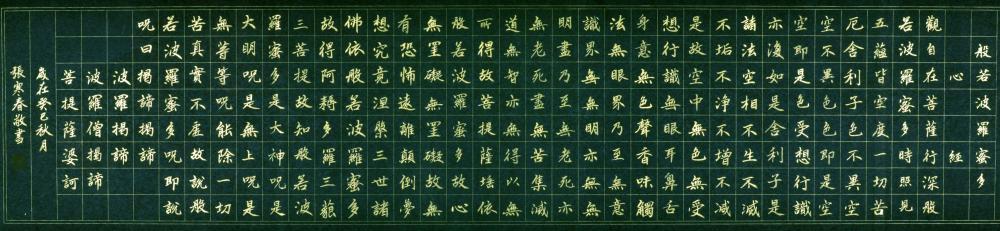 般若波羅蜜多
心經
觀自在菩薩行深般
若波羅蜜多時照見
五蘊皆空度一切苦
厄舍利子色不異空
空不異色色即是空
空即是色受想行識
亦復如是舍利子是
諸法空相不生不滅
不垢不淨不增不減
是故空中無色無受
想行識無眼耳鼻舌
身意無色聲香味觸
法無眼界乃至無意
識界無無明亦無無
明盡乃至無老死亦
無老死盡無苦集滅
道無智亦無得以無
所得故菩提薩埵依
般若波羅蜜多故心
無罣礙無罣礙故無
有恐怖遠離顛倒夢
想究竟涅槃三世諸
佛依般若波羅蜜多
故得阿耨多羅三藐
三菩提故知般若波
羅蜜多是大神呪是
大明呪是無上呪是
無等等呪能除一切
苦真實不虛故說般
若波羅蜜多呪即說
呪曰揭諦揭諦
波羅揭諦
波羅僧揭諦
菩提薩婆訶
歲在癸巳秋月
張寒春敬書